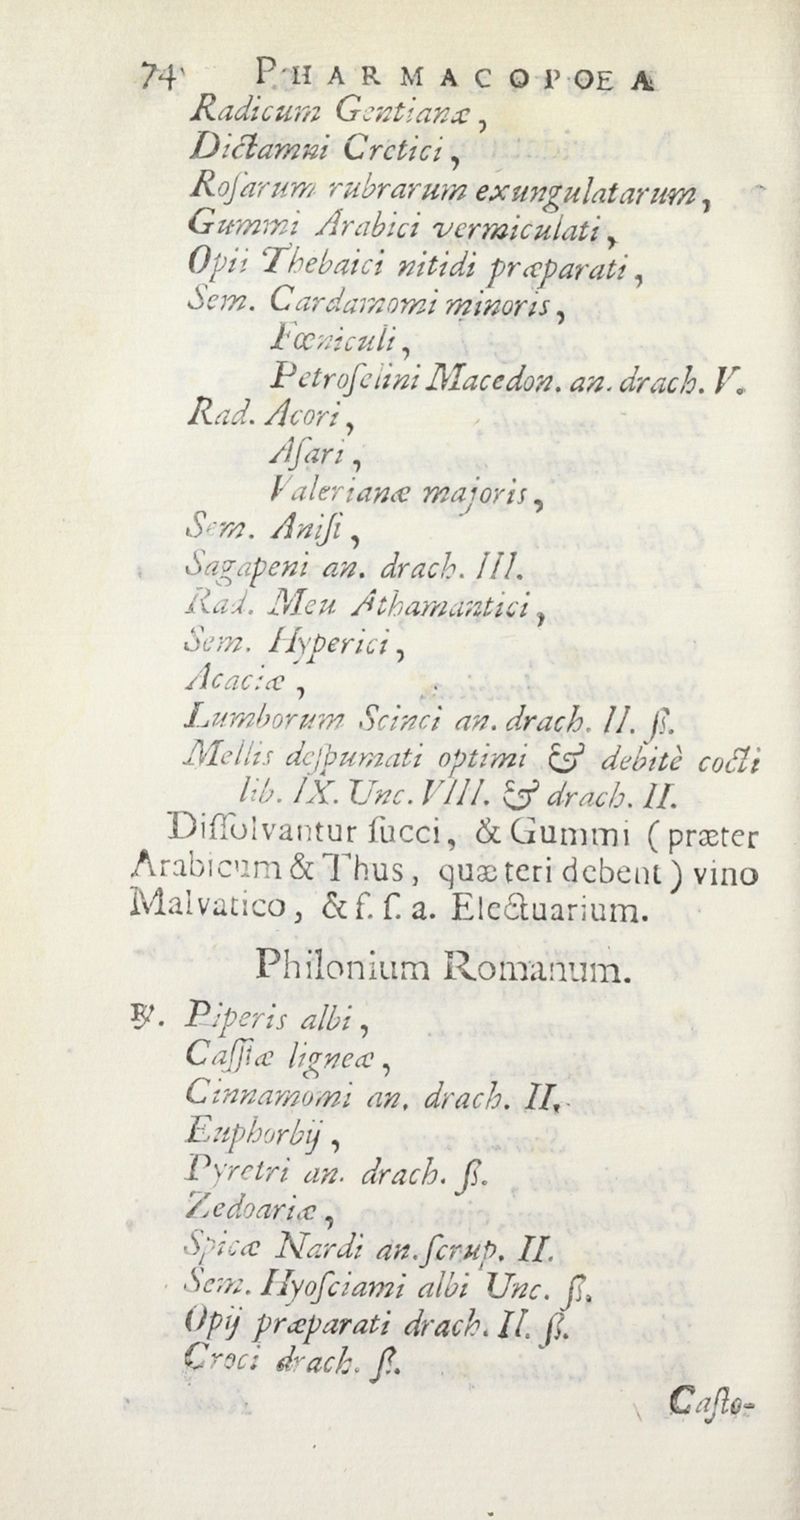 74 PHARMACOPOEA
Radicum Gentianæ,
Dictamni Cretici,
Roſarum rubrarum exungulatarum,
Gummi Arabici vermiculati,
Opii Thebaici nitidi præparati,
Sem. Cardamomi minoris,
Fœniculi,
Petroſelini Macedon. an. drach. V.
Rad. Acori,
Aſari,
Valerianæ majoris,
Sem. Aniſi,
Sagapeni an. drach. III.
Rad. Meu Athamantici,
Sem. Hyperici,
Acaciæ,
Lumborum Scinci an. drach. II. ß.
Mellis deſpumati optimi & debitè cocti
lib. IX. Unc. VIII. & drach. II.
Diſſolvantur ſucci, & Gummi (præter
Arabicum & Thus, quæ teri debent) vino
Malvatico, & f. ſ. a. Electuarium.
Philonium Romanum.
℞. Piperis albi,
Caſſiæ ligneæ,
Cinnamomi an. drach. II.
Euphorbij,
Pyretri an. drach. ß.
Zedoariæ,
Spicæ Nardi an. ſcrup. II.
Sem. Hyoſciami albi Unc. ß.
Opij præparati drach. II. ß.
Croci drach. ß.
Caſto-